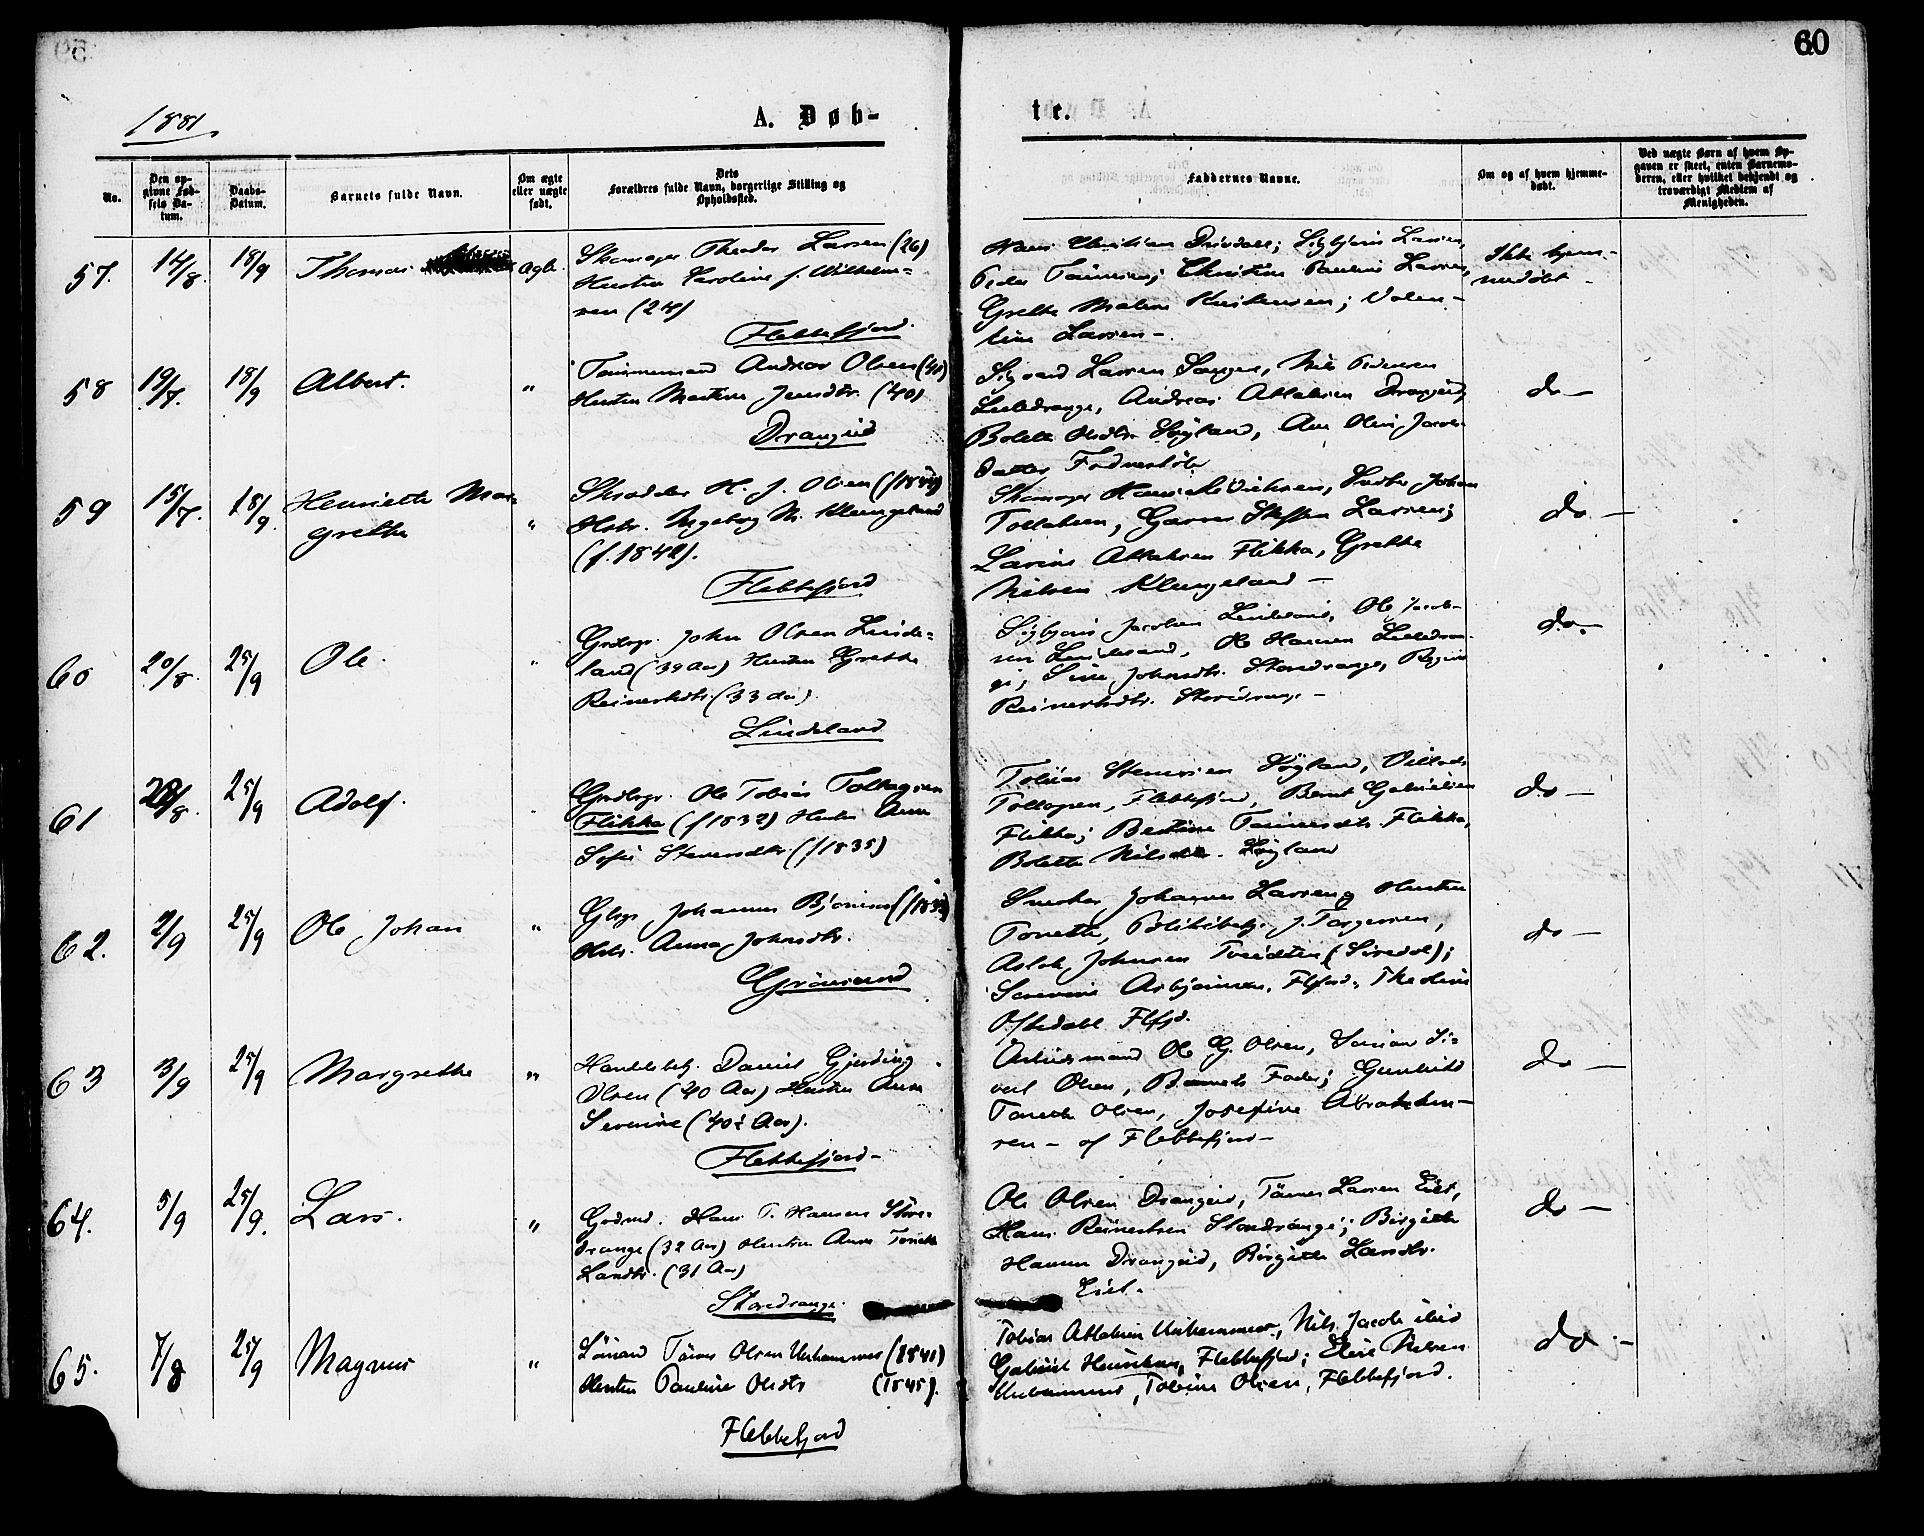 60
1881
A. Døb-
te.
No.
Den op-
givne Fød-
sels Da-
tum.
Daabs-
Datum.
Barnets fulde Navn.
Om ægte
eller uægte
født.
Dets
Forældres fulde Navn, borgerlige Stilling og
Opholdssted.
Faddernes Navne.
Om og af hvem hjemme-
døbt.
Ved uægte Børn af hvem Op-
gaven er skeet, enten Barnemo-
deren, eller hvilket bekjendt og
troværdigt Medlem af
Menigheden.
57. 14/8. 18/9 Thomas Ægte.
Skomager Theodor Larsen (26)
Hustru Karoline f. Wilhelm-
sen (24)
Flekkefjord.
Hans Christian Drivdal; Sigbjørn Larsen,
Peder Tønnesen; Christine Pauline Larsen,
Grethe Malene Kristensen; Valen-
tine Larsen -
Ikke hjem-
medøbt -
58 19/7. 18/9 Albert. "
Tømmermand Andreas Olsen (40)
Hustru Martine Jensdtr. (40)
Drangeid
Sigvard Larsen Nils Pedersen
Lilledrange, Andreas Attaksen Drangeid,
Bolette Olsdtr Høyland, Ane Oline Jacobs-
datter
do -
59 15/7. 18/9. Henriette Mar-
grethe "
Skrædder H. J. Olsen
Hstr. Ingeborg M. Klungeland
(f. 1842).
Flekkefjord
Skomager Hans Johan
Tollaksen, Garver Steffen Larsen;
Larine Attaksen Flikka, Grethe
Nilsen Klungeland -
do. -
60 20/8. 25/9 Ole. "
Grdbgr. John Olsen Linde-
land (39 Aar) Hustru Grethe
Reinertsdtr. (33 do).
Lindeland
Sigbjørn Jacobsen Lindeland, Ole Jacob-
sen Lindeland, Ole Hansen Lilledran-
ge; Sine Johnsdtr. Storedrange,
Reinertsdtr. Storedrange -
do. -
61 /8. 25/9 Adolf. "
Grdbgr. Ole Tobias Tollagsen
Flikka (f 1832) Hustru Ane
Sofie Stensdtr (f 1835)
Tobias Høyland,
Tollagsen, Flekkefjord, Bernt Gabrielsen
Flikka; Bertine Tønnesdtr. Flikka,
Bolette Nilsdtr. Høyland
do -
62. 2/9 25/9 Ole Johan "
Johannes Bjørnsen
Hstr. Anna Johnsdtr.
Grønsund
Snedker Johannes Larsen og Hustru
Tonette, Politibetj. J. Torgersen,
Aslak Johnsen (Siredal);
Severine Asbjørnsen, Flfjord.,
Oftedahl Flfjd.
do -
63 3/9 25/9 Margrethe "
Handelsbetj. Daniel Gjerding
Olsen (40 Aar) Hustru Anne
Severine (40½ Aar).
Flekkefjord -
Arbeidsmand Ole G. Olsen, Si-
vert Olsen, Barnets Fader; Gunhild
Tonette Olsen, Josefine Abraham-
sen - af Flekkefjord -
do -
64. 5/9 25/9. Lars. "
Grdmd. Hans T. Hansen Store-
drange (32 Aar) Hustru Anne Tonette
Larsdtr. (31 Aar)
Storedrange.
Ole Olsen Drangeid, Tønnes Larsen Eiet,
Hans Reinertsen Storedrange; Birgitte
Hansen Drangeid, Birgitte Larsdtr.
Eiet.
do -
65. 7/8 25/9 Magnus "
Tønnes Olsen Urhammer (1841)
Hustru Pauline Olsdtr (1845).
Flekkefjord
Tobias Attaksen Urhammer, Nils Jacob ibid
Gabriel Henriksen, Flekkefjord; Nilsen
Urhammer, Tobine Olsen, Flekkefjord.
do. -